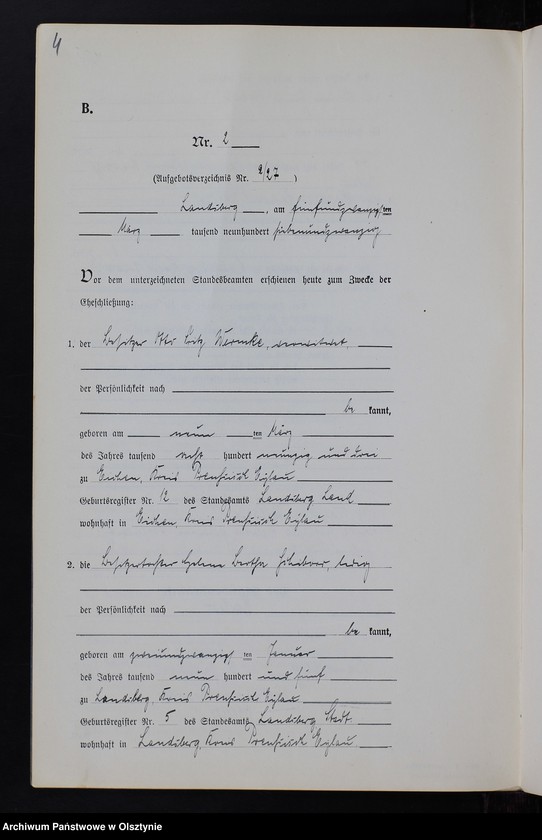 4
B.
Nr. 2
(Aufgebotsverzeichnis Nr. 2/27)
Landsberg, am fünfundzwanzigsten
März tausend neunhundert siebenundzwanzig
Vor dem unterzeichneten Standesbeamten erschienen heute zum Zwecke der
Eheschließung:
1. der Besitzer Otto Fritz Warmke, verwitwet,
der Persönlichkeit nach
be kannt,
geboren am neun ten März
des Jahres tausend acht hundert neunzig und drei
zu Eichen, Kreis Preußisch Eylau
Geburtsregister Nr. 12 des Standesamts Landsberg Land
wohnhaft in Eichen, Kreis Preußisch Eylau
2. die Besitzertochter Helene Bertha, ledig
der Persönlichkeit nach
be kannt,
geboren am zweiundzwanzigsten Januar
des Jahres tausend neun hundert und fünf
zu Landsberg, Kreis Preußisch Eylau
Geburtsregister Nr. 5 des Standesamts Landsberg Stadt
wohnhaft in Landsberg, Kreis Preußisch Eylau
Archiwum Państwowe w Olsztynie